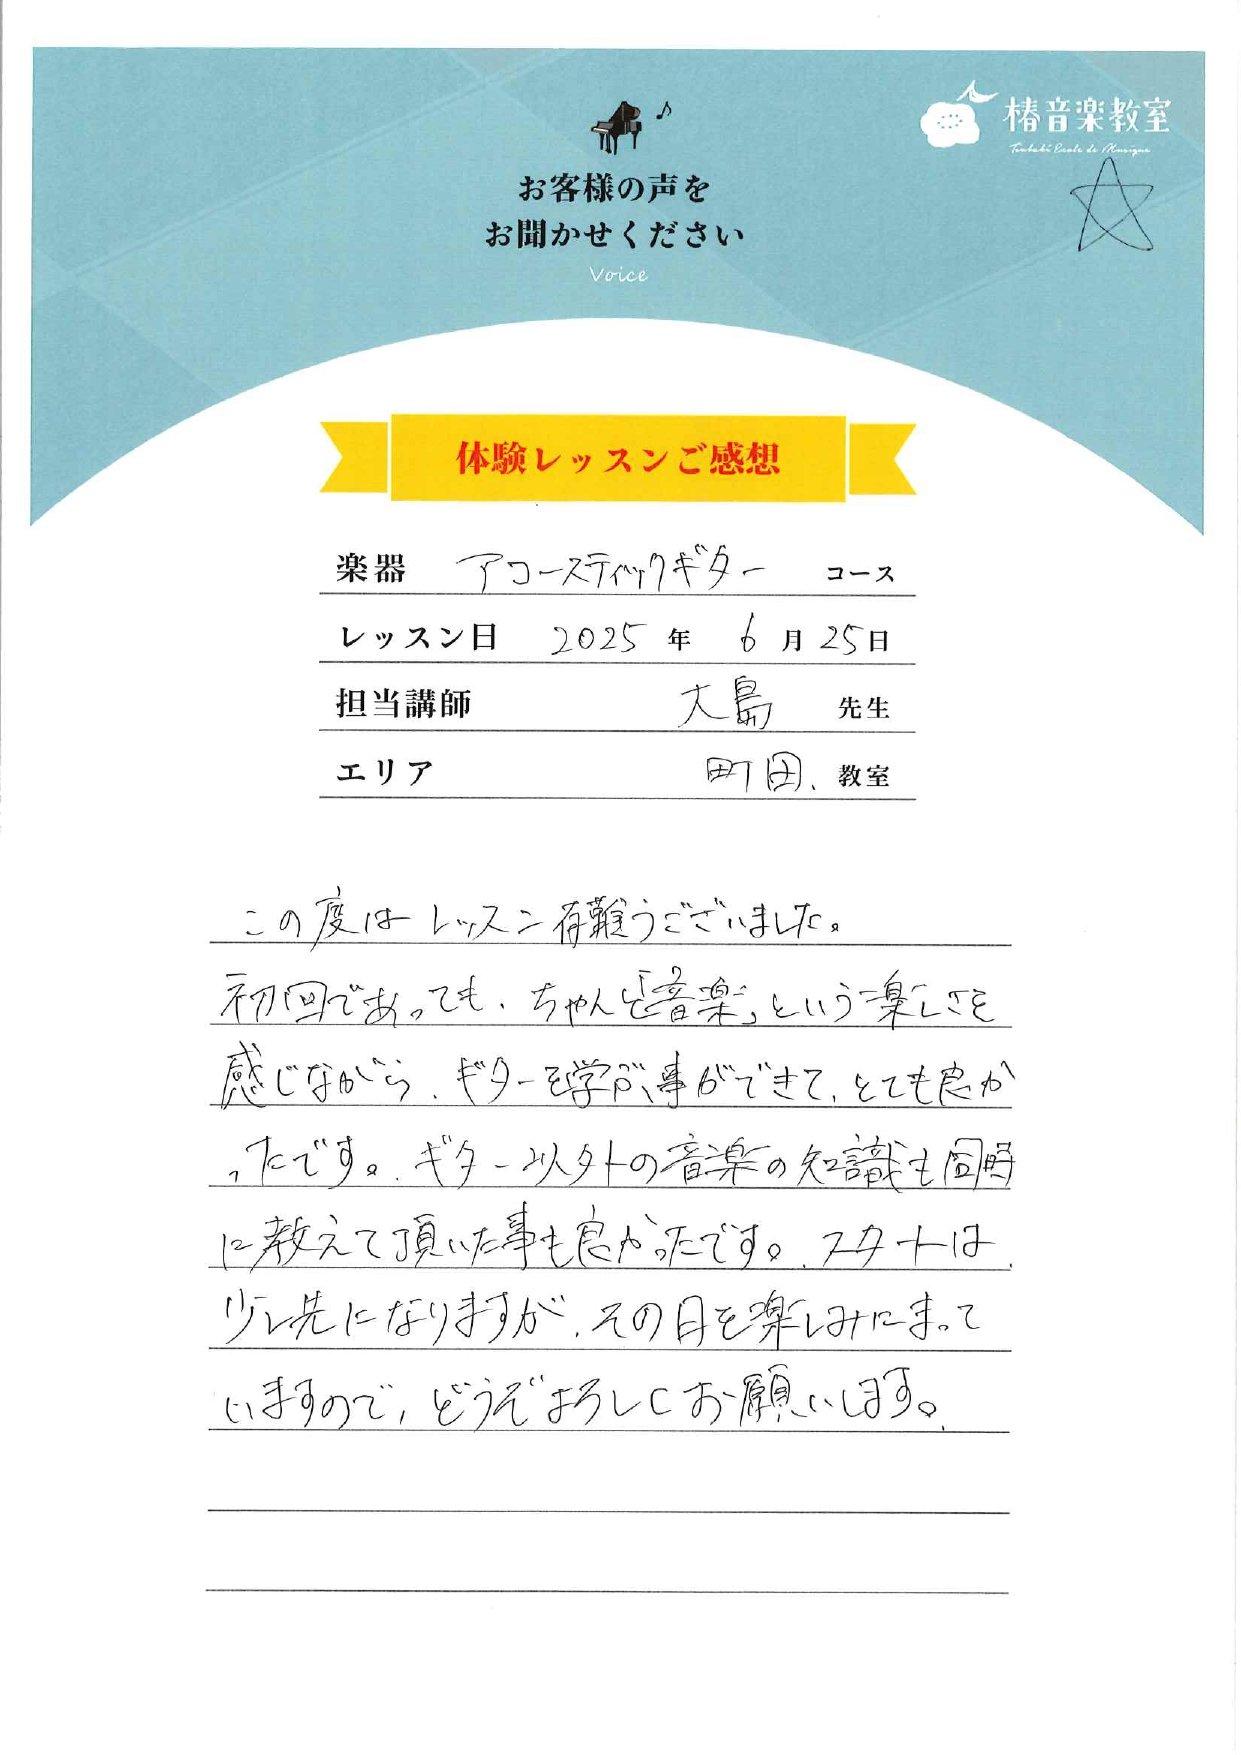 椿音楽教室
Tsubaki Ecole de Musique
お客様の声を
お聞かせください
Voice
体験レッスンご感想
楽器 アコースティックギター コース
レッスン日 2025 年 6 月 25 日
担当講師 大島 先生
エリア 町田、教室
この度はレッスン有難うございました。
初回であっても、ちゃんと「音楽」という楽しさを
感じながら、ギターを学ぶ事ができて、とても良か
ったです。ギター以外の音楽の知識も同時
に教えて頂いた事も良かったです。スタートは
少し先になりますが、その日を楽しみにまって
いますので、どうぞよろしくお願いします。